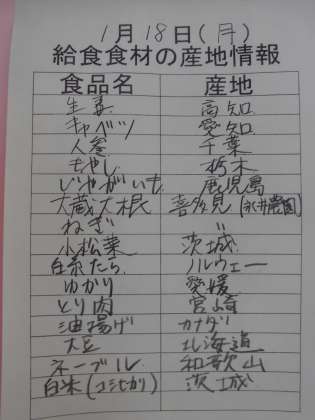 1月18日(月)
給食食材の産地情報
食品名 産地
生姜 高知
キャベツ 愛知
人参 千葉
もやし 栃木
じゃがいも 鹿児島
大蔵大根 喜多見(永井農園)
ねぎ 〃
小松菜 茨城
白糸たら ノルウェー
ゆかり 愛媛
とり肉 宮崎
油揚げ カナダ
大豆 北海道
ネーブル 和歌山
白米(コシヒカリ) 茨城